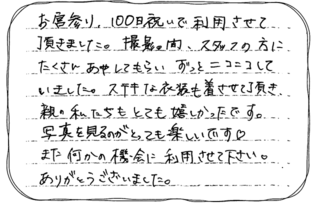 お宮参り、100日祝いで利用させて
頂きました。撮影の間、スタッフの方に
たくさんあやしてもらいずっとニコニコして
いました。ステキな衣装も着させて頂き、
親の私たちもとても嬉しかったです。
写真を見るのがとっても楽しいです♡
また何かの機会に利用させて下さい。
ありがとうございました。